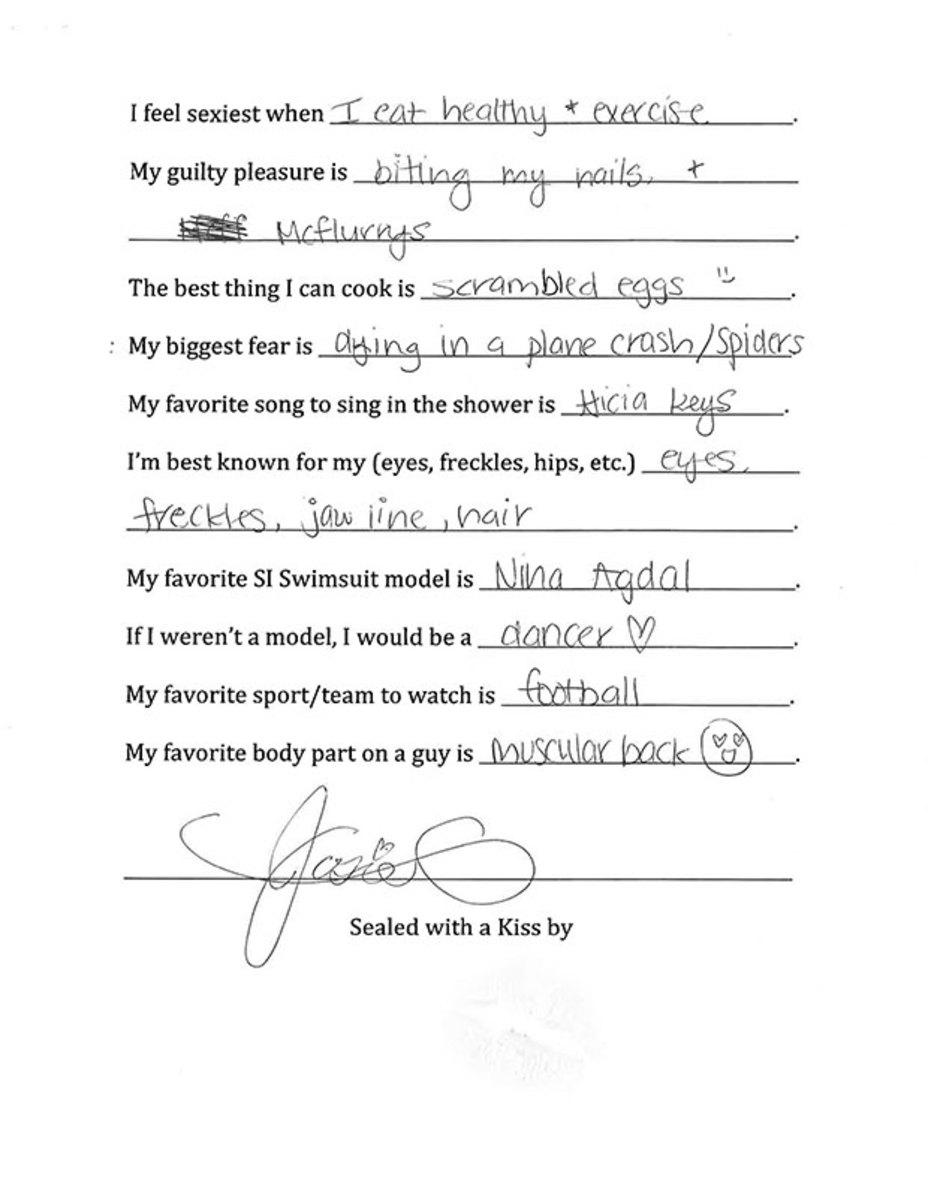 I feel sexiest when I eat healthy + exercise.
My guilty pleasure is biting my nails, +
Mcflurrys.
The best thing I can cook is scrambled eggs.
: My biggest fear is dying in a plane crash/spiders
My favorite song to sing in the shower is Alicia keys.
I'm best known for my (eyes, freckles, hips, etc.) eyes,
freckles, jaw line, hair.
My favorite SI Swimsuit model is Nina Agdal.
If I weren't a model, I would be a dancer ♡.
My favorite sport/team to watch is football.
My favorite body part on a guy is muscular back.
Josie
Sealed with a Kiss by